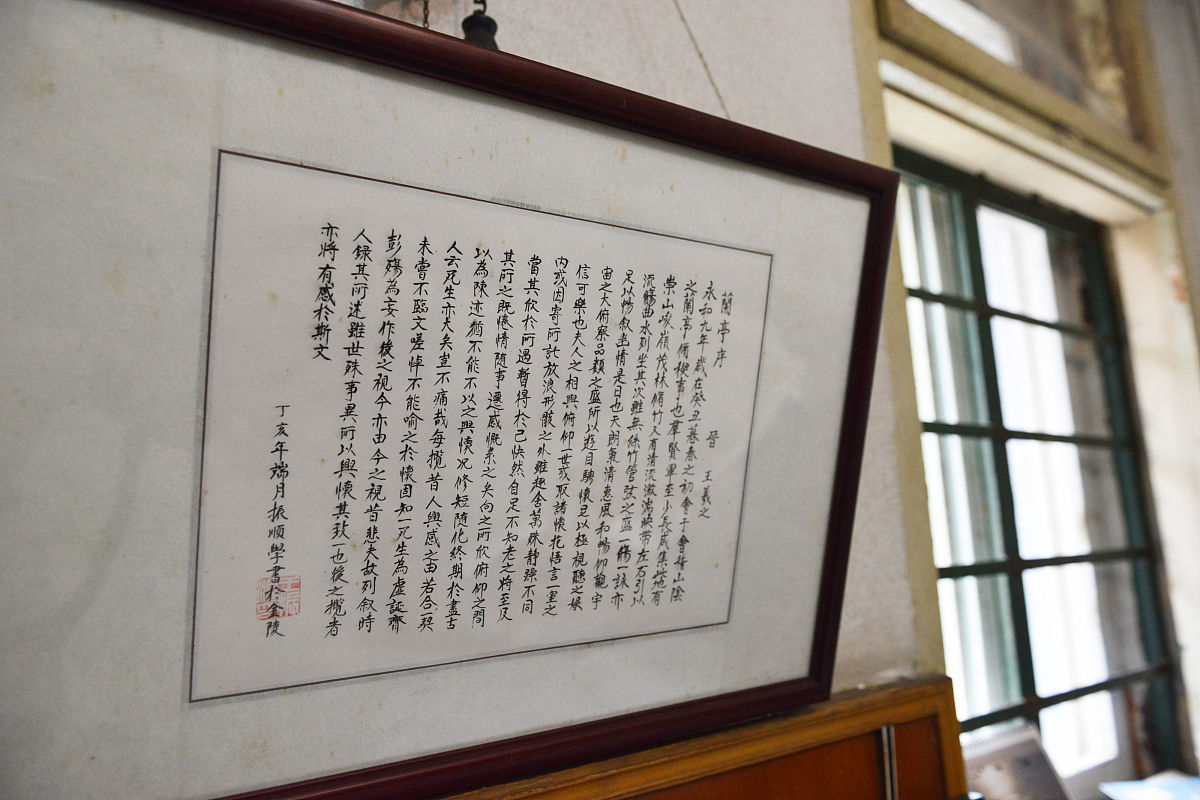 蘭亭序 晉 王羲之
永和九年歲在癸丑暮春之初會于會稽山陰
之蘭亭脩稧事也羣賢畢至少長咸集此地有
崇山峻嶺茂林脩竹又有清流激湍暎帶左右引以
流觴曲水列坐其次雖無絲竹管弦之盛一觴一詠亦
足以暢叙幽情是日也天朗氣清惠風和暢仰觀宇
宙之大俯察品類之盛所以遊目騁懷足以極視聽之娛
信可樂也夫人之相與俯仰一世或取諸懷抱悟言一室之
內或因寄所託放浪形骸之外雖趣舍萬殊靜躁不同
當其欣於所遇暫得於己快然自足不知老之將至及
其所之既惓情隨事遷感慨系之矣向之所欣俯仰之間
以為陳迹猶不能不以之興懷况修短隨化終期於盡古
人云死生亦大矣豈不痛哉每攬昔人興感之由若合一契
未嘗不臨文嗟悼不能喻之於懷固知一死生為虛誕齊
彭殤為妄作後之視今亦由今之視昔悲夫故列叙時
人録其所述雖世殊事異所以興懷其致一也後之攬者
亦將有感於斯文
丁亥年端月振順學書於金陵